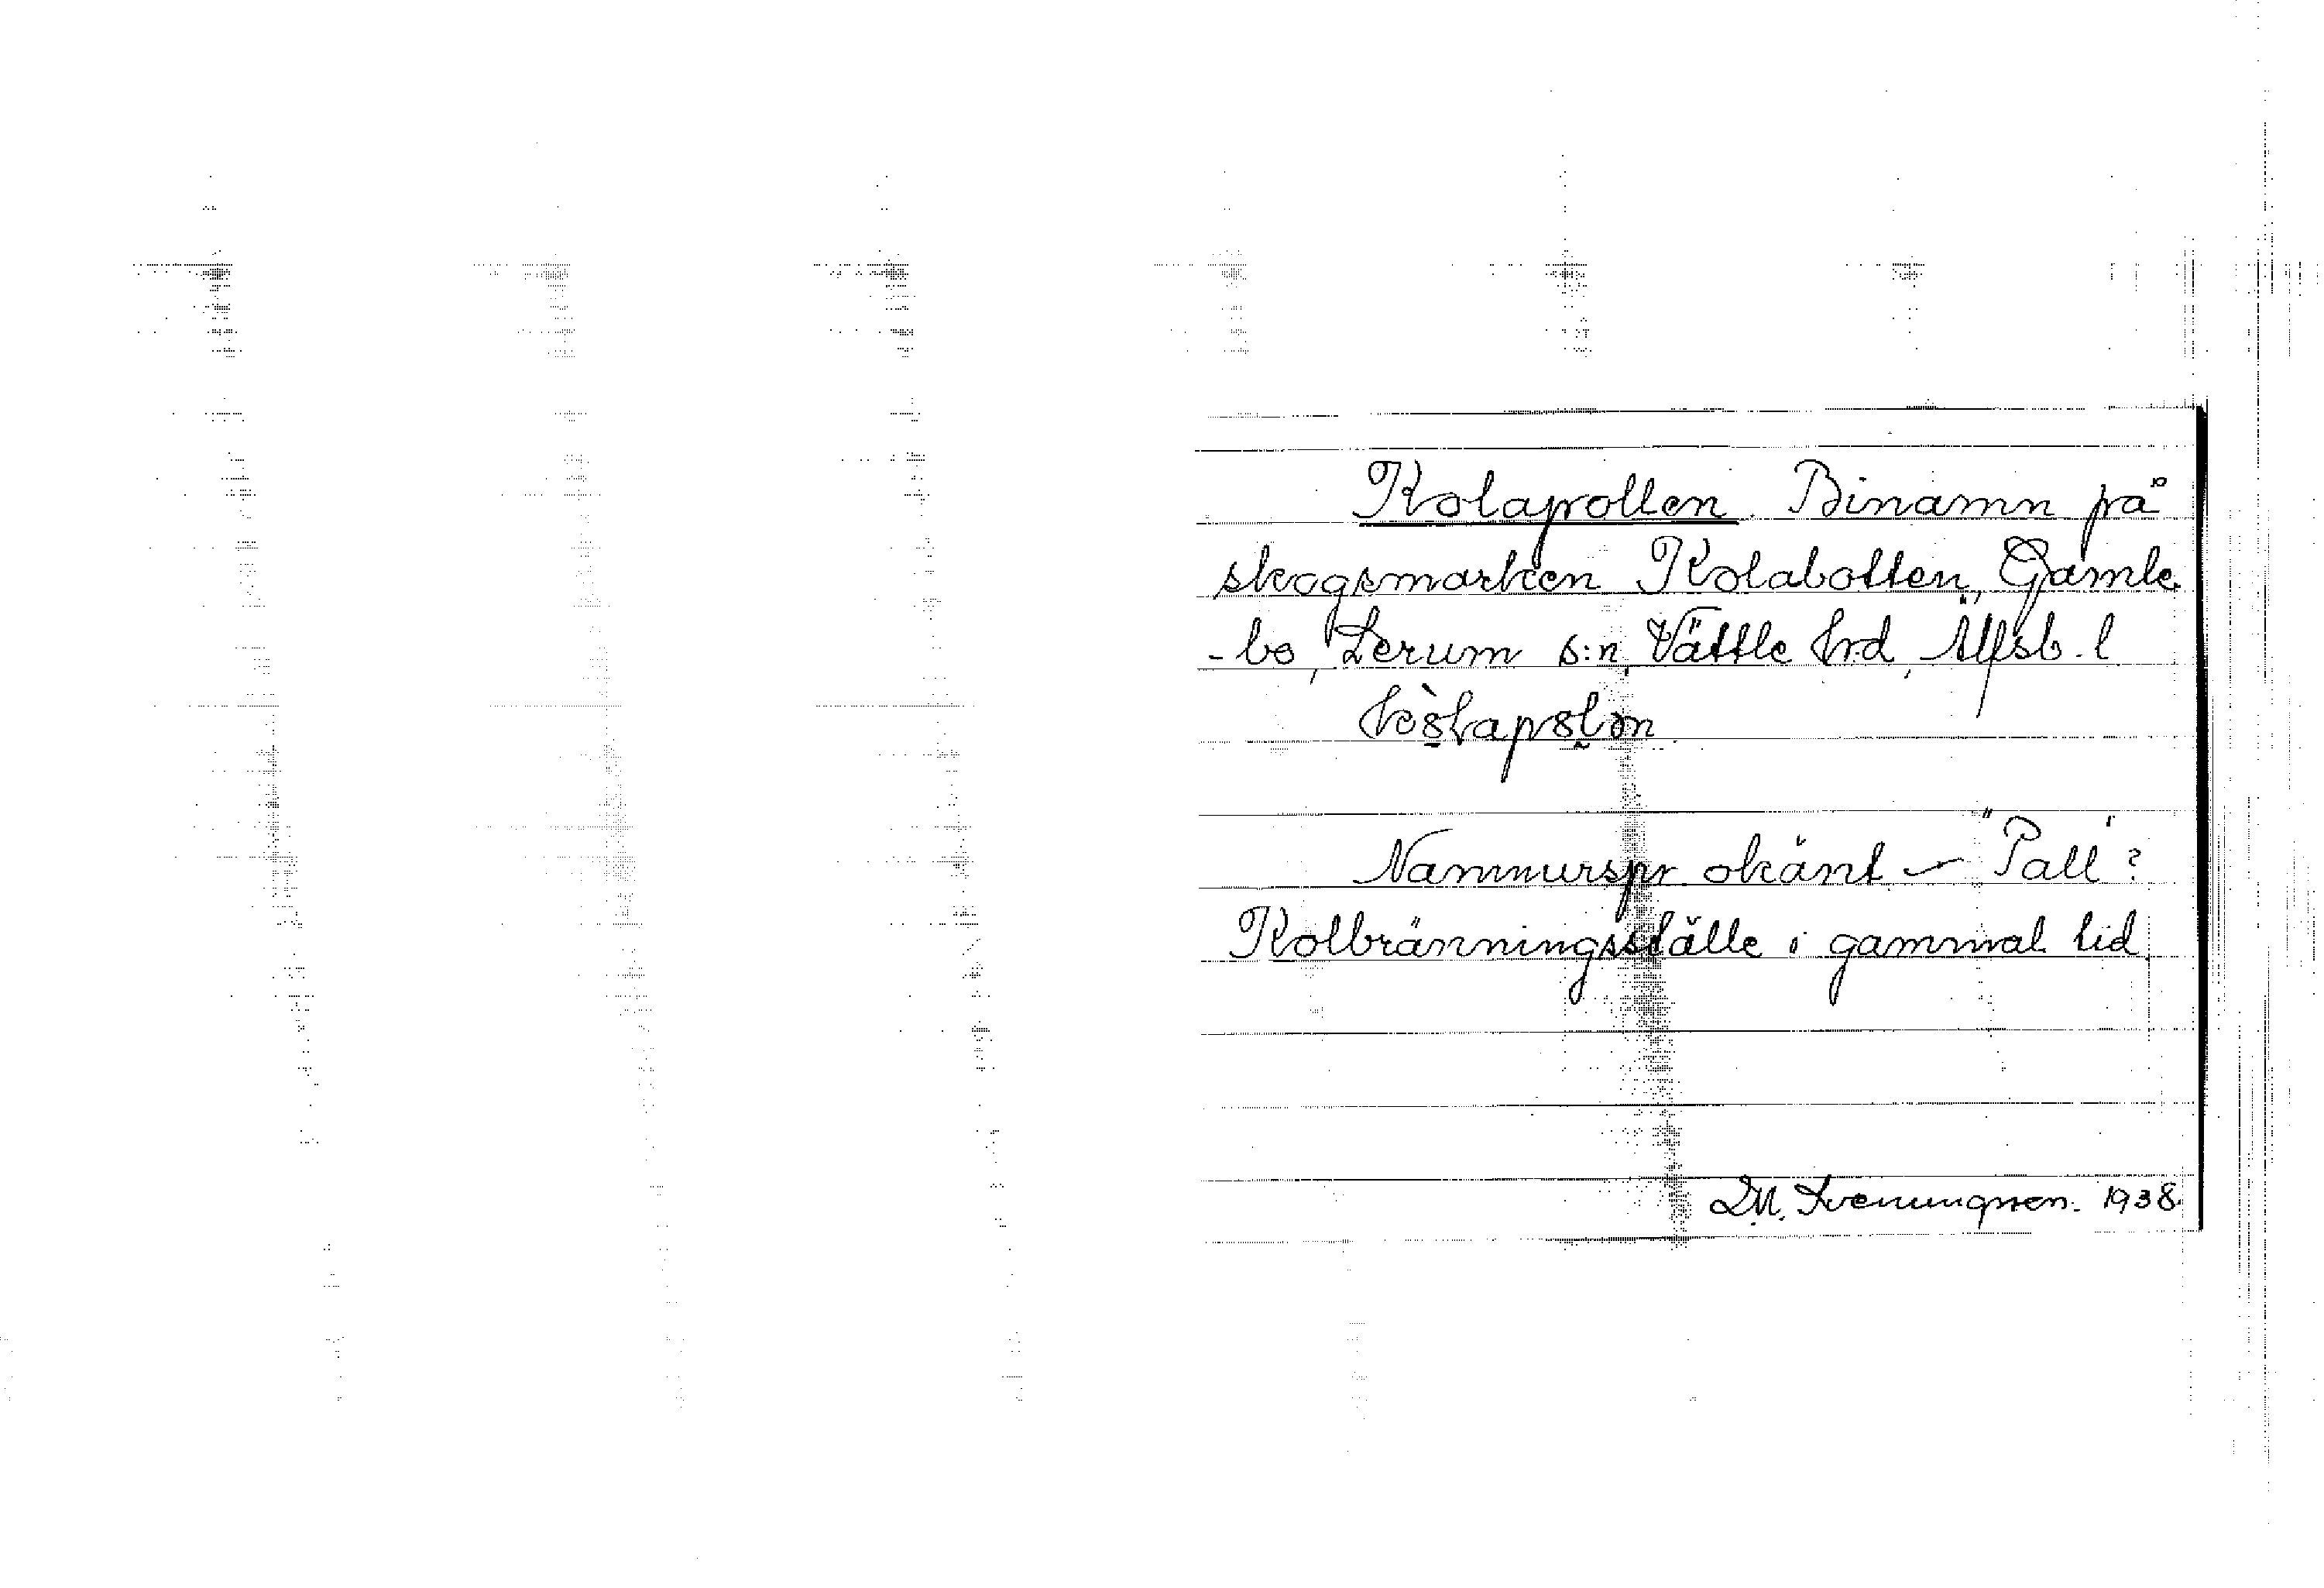 Kolapollen. Binamn på
skogsmarken Kolabotten, Gamle-
-bo, Lerum s:n, Vättle hrd, Älfsb. l.
Namnurspr. okänt – "Pall"?
Kolbränningsställe i gammal tid.
1938.